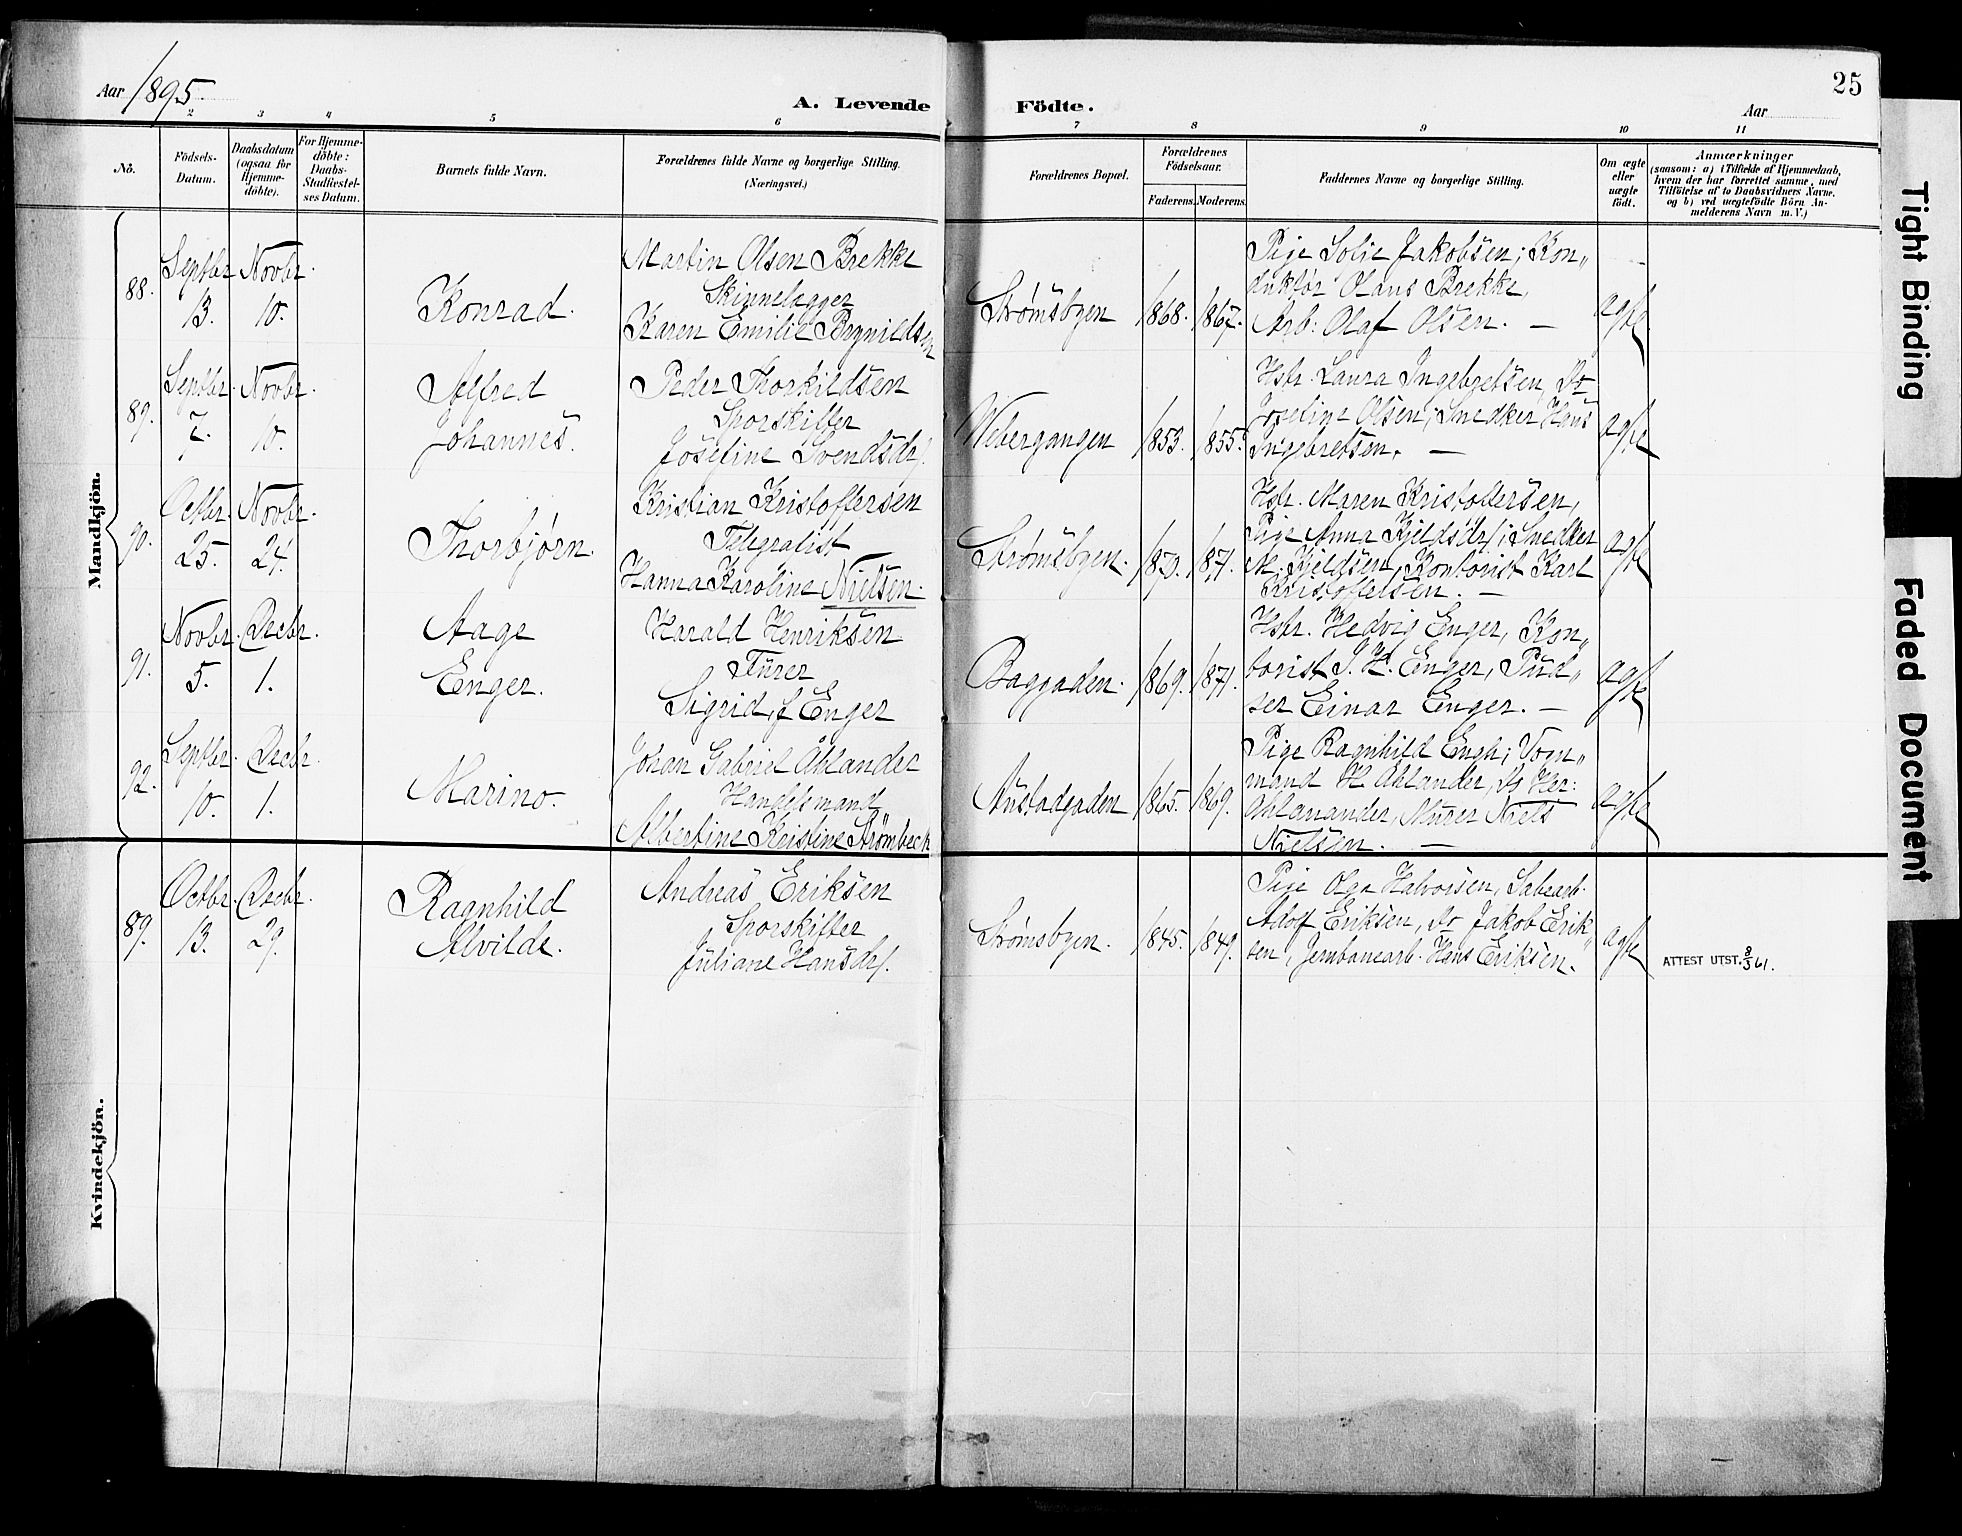 25
Aar 1895.
A. Levende Födte.
Aar
2 3 4 5 6 7 8 9 10 11
No.
Födsels-
Datum.
Daabsdatum
(ogsaa for
Hjemme-
döbte).
For Hjemme-
döbte:
Daabs-
Stadfæstel-
ses Datum.
Barnets fulde Navn.
Forældrenes fulde Navne og borgerlige Stilling.
(Næringsvei.)
Forældrenes Bopæl.
Forældrenes
Födselsaar.
Faderens. Moderens.
Faddernes Navne og borgerlige Stilling.
Om ægte
eller
uægte
födt.
Anmærkninger
(saasom: a) i Tilfælde af Hjemmedaab,
hvem der har forrettet samme, med
Tilföielse af to Daabsvidners Navne.
og b) ved uægtefödte Börn An-
melderens Navn m. V.)
Mandkjön.
88.
Septbr.
13.
Novbr.
10.
Konrad.
Martin Olsen Brekke
Skinnelægger
Karen Emilie Brynildsen
Strømsbyen
1868.
1867.
Pige Solie Jakobsen; Kon„
duktør Olaus Brekke,
Arb. Olaf Olsen. —
ægte
89.
Septbr.
7.
Novbr.
10.
Alfred
Johannes.
Peder Thorkildsen
Sporskifter
Josefine Svendsdr.
Vebergangen
1853.
1855.
Hstr. Laura Ingebretsen, Do
Josefine Olsen; Snedker Hans
Ingebretsen. —
ægte
90.
Octbr.
25.
Novbr.
24.
Thorbjørn.
Kristian Kristoffersen
Telegrafist
Hanna Karoline Nielsen.
Strømsbyen.
1870.
1871.
Hstr. Maren Kristoffersen,
Pige Anna Kjeldsdr; Snedker
M. Kjeldsen, Kontorist Karl
Kristoffersen. —
ægte
91.
Novbr.
5.
Decbr.
1.
Aage
Enger.
Harald Henriksen
Fürer
Sigrid, f. Enger
Baggaden.
1869.
1871.
Hstr. Hedvig Enger, Kon„
torist J. H. Enger, Pud„
ser Einar Enger. —
ægte
92.
Septbr.
10.
Decbr.
1.
Marino.
Johan Gabriel Åhlander
Handelsmand
Albertine Kristine Strömbeck
1865.
1869.
Pige Ragnhild Engh; Vogn„
mand H. Ahlander, Do Her:
Ahlanander, Murer Niels
Nielsen. —
ægte
Kvindekjön.
89.
Octbr.
13.
Decbr.
29.
Ragnhild
Alvilde.
Andreas Eriksen
Sporskifter
Juliane Hansdr.
Strømsbyen.
1845.
1849.
Pige Olga Halvorsen, Sabearb.
Adolf Eriksen, Do Jakob Erik„
sen, Jernbanearb. Hans Eriksen.
ægte
ATTEST UTST. 8/3 61.
Tight Binding
Faded Document